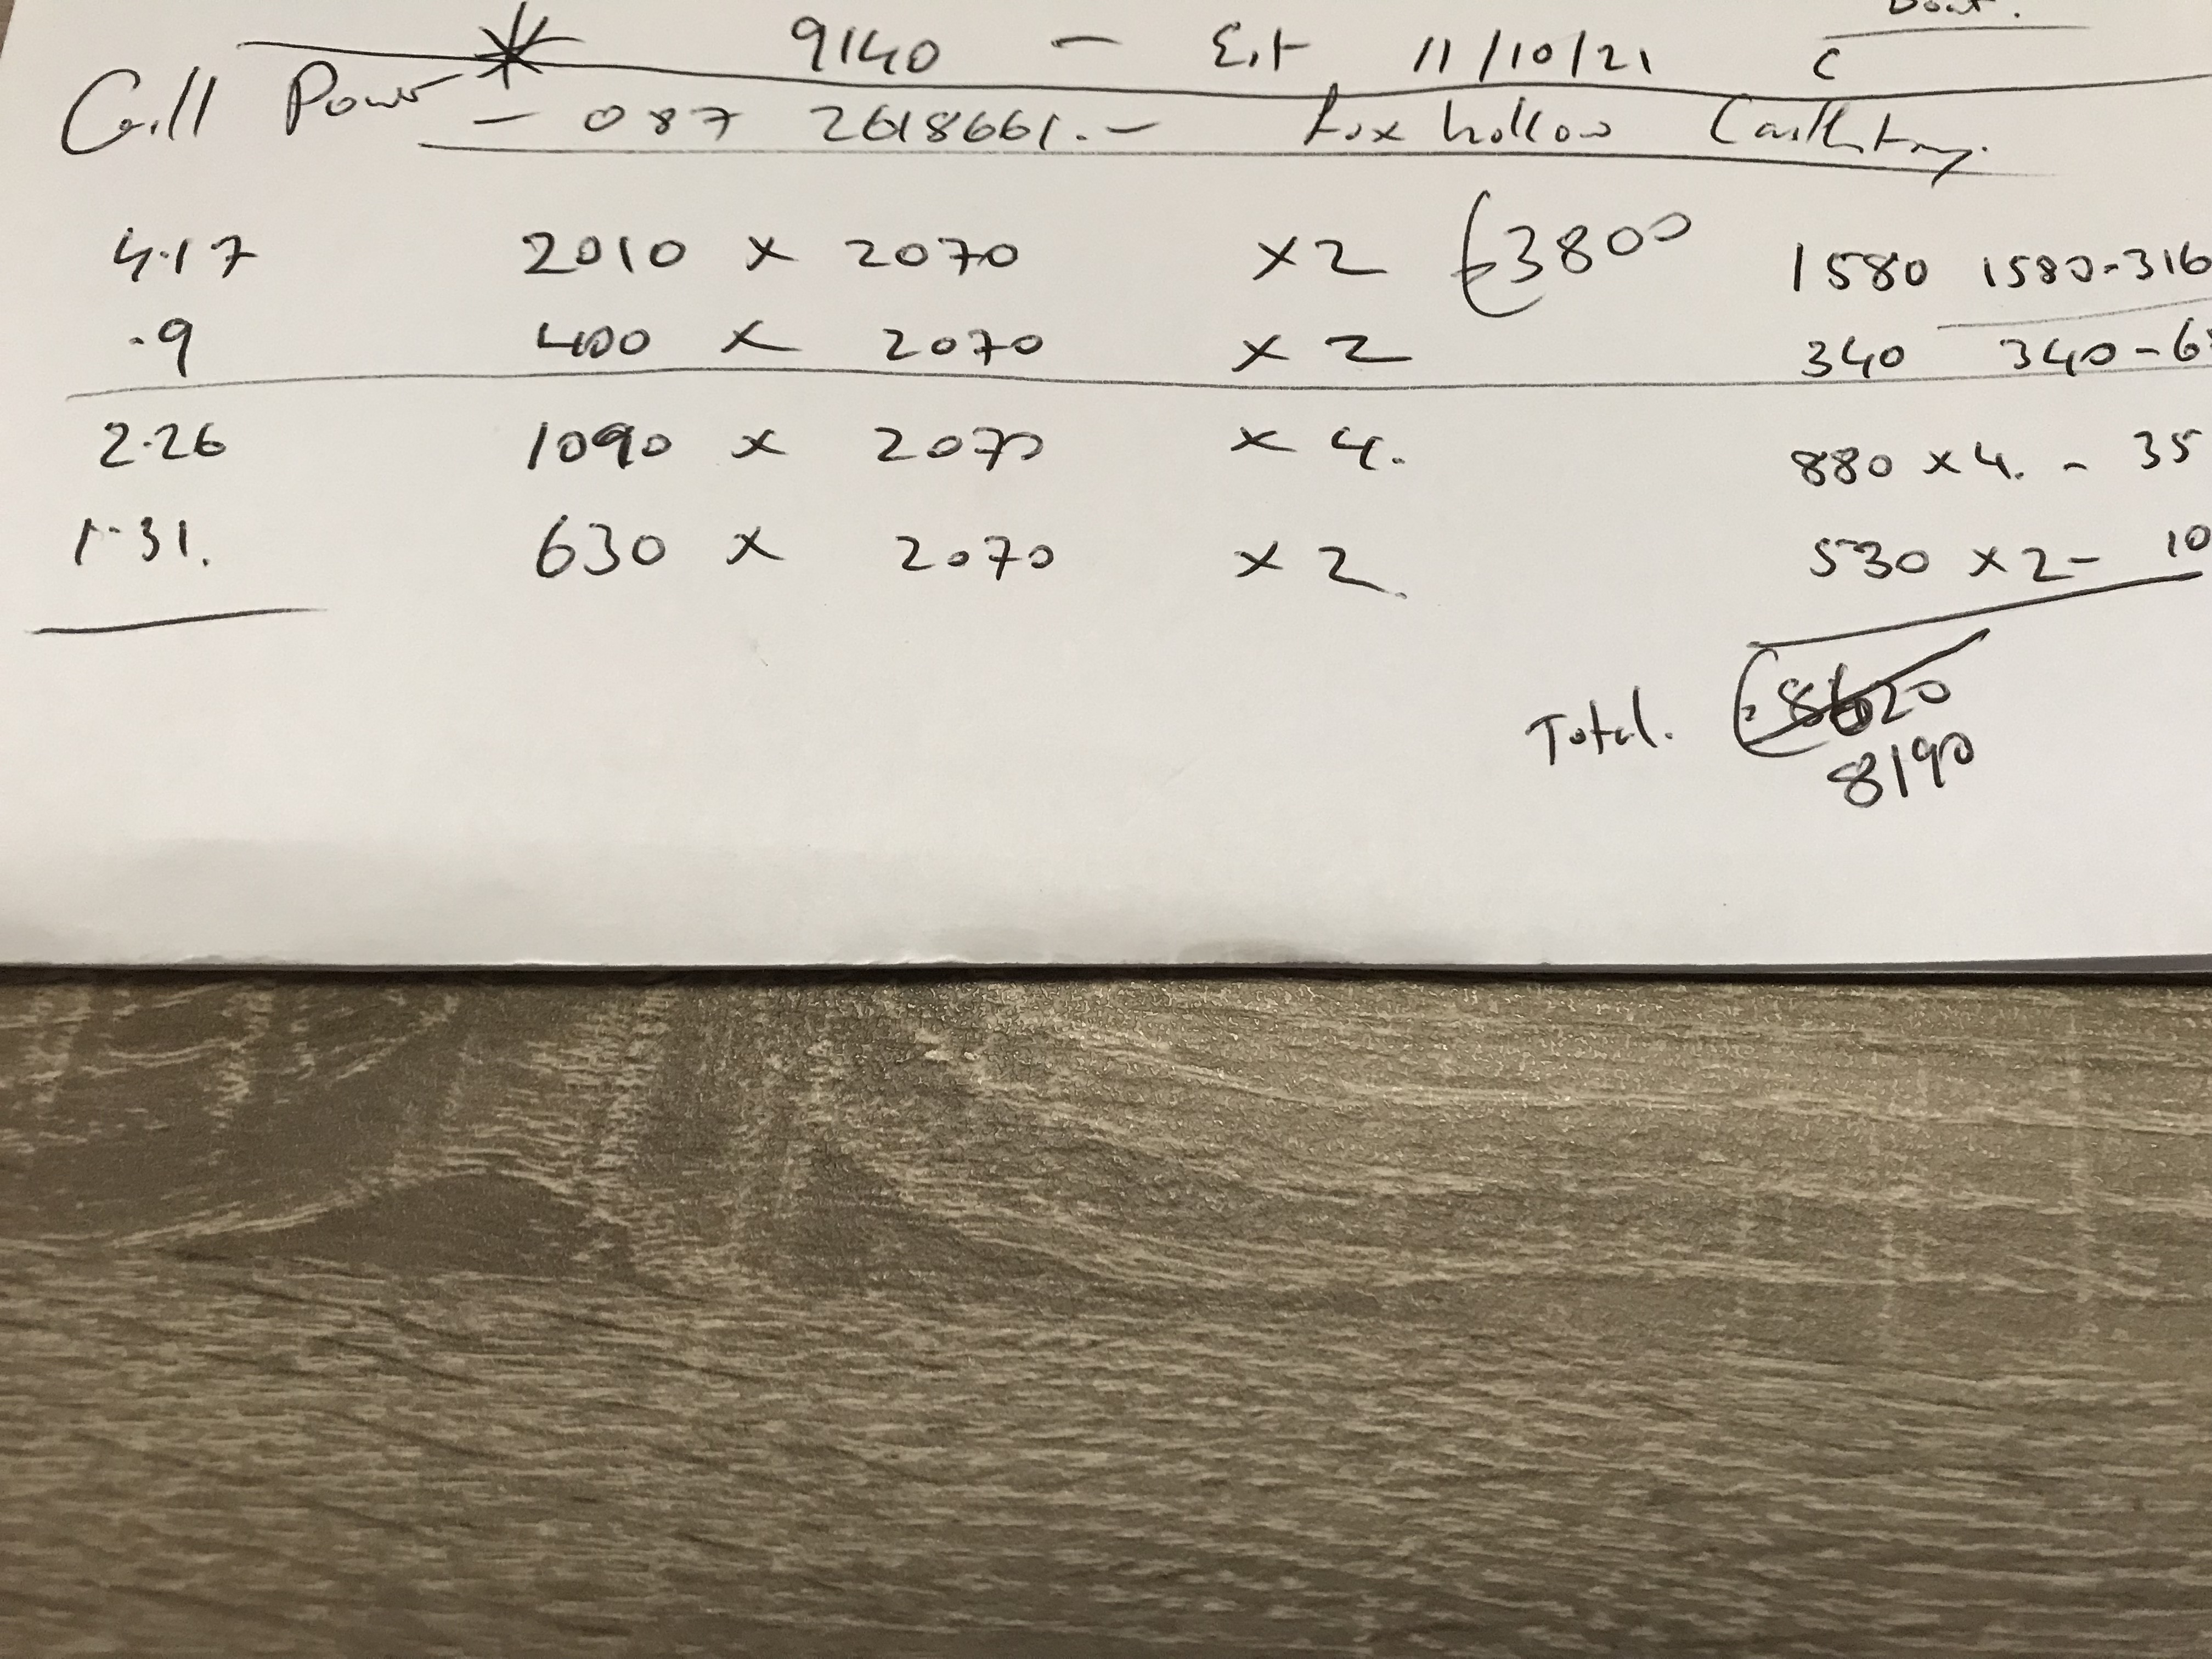 9140 – Est 11/10/21 C
Gill Power – 087 2618661. – Fox hollow
4.17 2010 x 2070 x2 €3800 1580 1580-316
.9 400 x 2070 x 2 340 340-6
2.26 1090 x 2070 x 4. 880 x 4. - 35
1.31. 630 x 2070 x 2. 530 x 2- 10
Total. 8620
8190